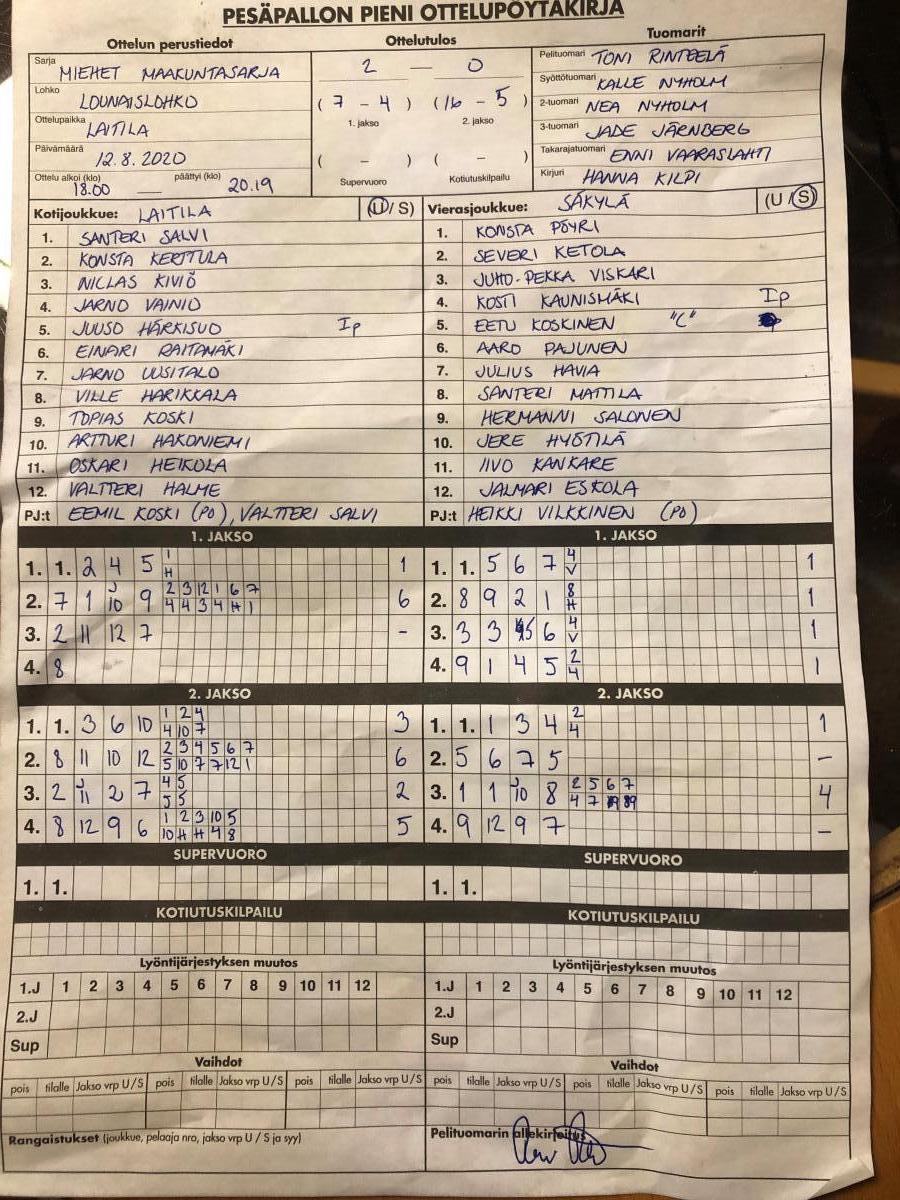 PESÄPALLON PIENI OTTELUPÖYTÄKIRJA
Ottelun perustiedot Ottelutulos Tuomarit
Sarja MIEHET MAAKUNTASARJA
Lohko LOUNAISLOHKO
Ottelupaikka LAITILA
Päivämäärä 12.8.2020
Ottelu alkoi (klo) 18.00 — päättyi (klo) 20.19
2 — 0
( 7 - 4 ) (16 - 5 )
1. jakso 2. jakso
( - ) ( - )
Supervuoro Kotiutuskilpailu
Pelituomari TONI RINTEELÄ
Syöttötuomari KALLE NYHOLM
2-tuomari NEA NYHOLM
3-tuomari JADE JÄRNBERG
Takarajatuomari ENNI VAARASLAHTI
Kirjuri HANNA KILPI
Kotijoukkue: LAITILA (U/ S)
1. SANTERI SALVI
2. KONSTA KERTTULA
3. NICLAS KIVIÖ
4. JARNO VAINIO
5. JUUSO HÄRKISUO Ip
6. EINARI RAITAMÄKI
7. JARNO UUSITALO
8. VILLE HARIKKALA
9. TOPIAS KOSKI
10. ARTTURI HAKONIEMI
11. OSKARI HEIKOLA
12. VALTTERI HALME
PJ:t EEMIL KOSKI (PO), VALTTERI SALVI
Vierasjoukkue: SÄKYLÄ (U /S)
1. KONSTA PÖYRI
2. SEVERI KETOLA
3. JUHO-PEKKA VISKARI
4. KOSTI KAUNISMÄKI Ip
5. EETU KOSKINEN "C"
6. AARO PAJUNEN
7. JULIUS HAVIA
8. SANTERI MATTILA
9. HERMANNI SALONEN
10. JERE HYÖTILÄ
11. IIVO KANKARE
12. JALMARI ESKOLA
PJ:t HEIKKI VILKKINEN (PO)
1. JAKSO
1. 1. 2 4 5 1 1
H
2. 7 1 J10 9 2 3 12 1 6 7 6
4 4 3 4 H 1
3. 2 11 12 7 -
4. 8
1. JAKSO
1. 1. 5 6 7 4 1
V
2. 8 9 2 1 8 1
H
3. 3 3 5 6 4 1
V
4. 9 1 4 5 2 1
4
2. JAKSO
1. 1. 3 6 10 1 2 4 3
4 10 7
2. 8 11 10 12 2 3 4 5 6 7 6
5 10 7 7 12 1
3. 2 J11 2 7 4 5 2
J 5
4. 8 12 9 6 1 2 3 10 5 5
10 H H 4 8
2. JAKSO
1. 1. 1 3 4 2 1
4
2. 5 6 7 5 -
3. 1 1 J10 8 2 5 6 7 4
4 7
4. 9 12 9 7 -
SUPERVUORO
1. 1.
SUPERVUORO
1. 1.
KOTIUTUSKILPAILU
KOTIUTUSKILPAILU
Lyöntijärjestyksen muutos
1.J 1 2 3 4 5 6 7 8 9 10 11 12
2.J
Sup
Lyöntijärjestyksen muutos
1.J 1 2 3 4 5 6 7 8 9 10 11 12
2.J
Sup
Vaihdot
pois tilalle Jakso vrp U/S pois tilalle Jakso vrp U/S pois tilalle Jakso vrp U/S
Vaihdot
pois tilalle Jakso vrp U/S pois tilalle Jakso vrp U/S pois tilalle Jakso vrp U/S
Rangaistukset (joukkue, pelaaja nro, jakso vrp U / S ja syy)
Pelituomarin allekirjoitus